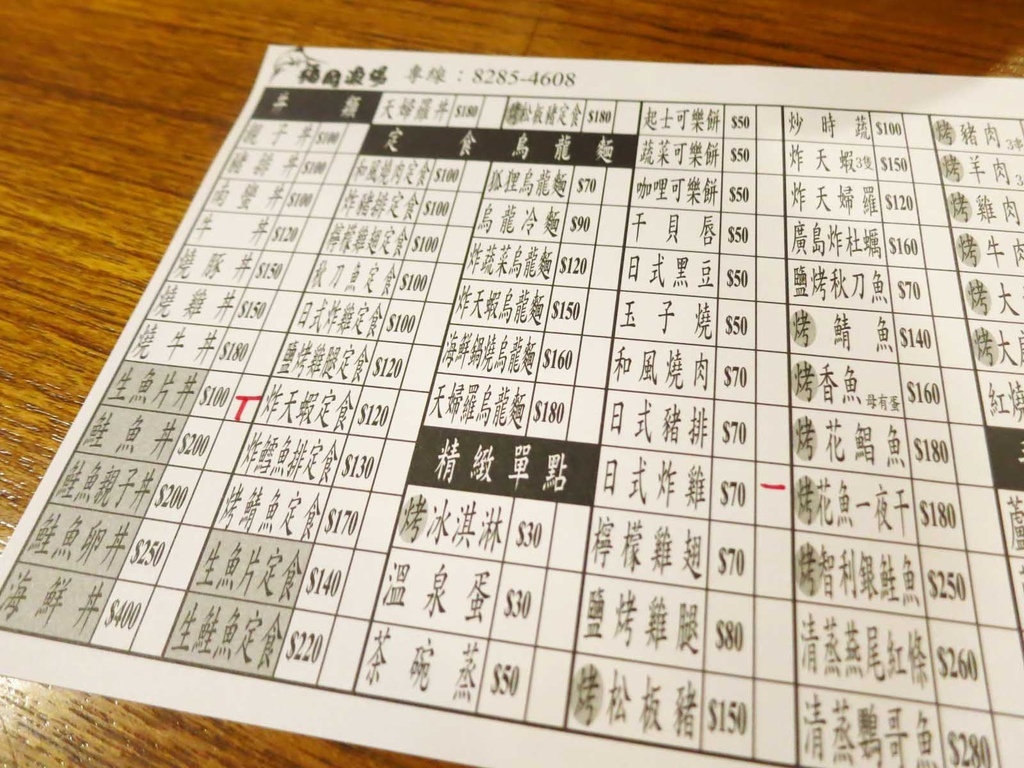 專線：8285-4608
丼類
親子丼 $100
豬排丼 $100
南蠻丼 $100
牛丼 $120
燒豚丼 $150
燒雞丼 $150
燒牛丼 $180
生魚片丼 $100
鮭魚丼 $200
鮭魚親子丼 $200
鮭魚卵丼 $250
海鮮丼 $400
天婦羅丼 $180
定食
和風燒肉定食 $100
炸豬排定食 $100
檸檬雞翅定食 $100
秋刀魚定食 $100
日式炸雞定食 $100
鹽烤雞腿定食 $120
炸天蝦定食 $120
炸鱈魚排定食 $130
烤鯖魚定食 $170
生魚片定食 $140
生鮭魚定食 $220
烤松板豬定食 $180
烏龍麵
狐狸烏龍麵 $70
烏龍冷麵 $90
炸蔬菜烏龍麵 $120
炸天蝦烏龍麵 $150
海鮮鍋燒烏龍麵 $160
天婦羅烏龍麵 $180
精緻單點
烤冰淇淋 $30
溫泉蛋 $30
茶碗蒸 $50
起士可樂餅 $50
蔬菜可樂餅 $50
咖哩可樂餅 $50
干貝唇 $50
日式黑豆 $50
玉子燒 $50
和風燒肉 $70
日式豬排 $70
日式炸雞 $70
檸檬雞翅 $70
鹽烤雞腿 $80
烤松板豬 $150
炒時蔬 $100
炸天蝦3隻 $150
炸天婦羅 $120
廣島炸牡蠣 $160
鹽烤秋刀魚 $70
烤鯖魚 $140
烤香魚 母有蛋 $160
烤花鯧魚 $180
烤花魚一夜干 $180
烤智利銀鮭魚 $250
清蒸燕尾紅條 $260
清蒸鸚哥魚 $280
烤豬肉
烤羊肉
烤雞肉
烤牛肉
烤大
烤大
紅燒